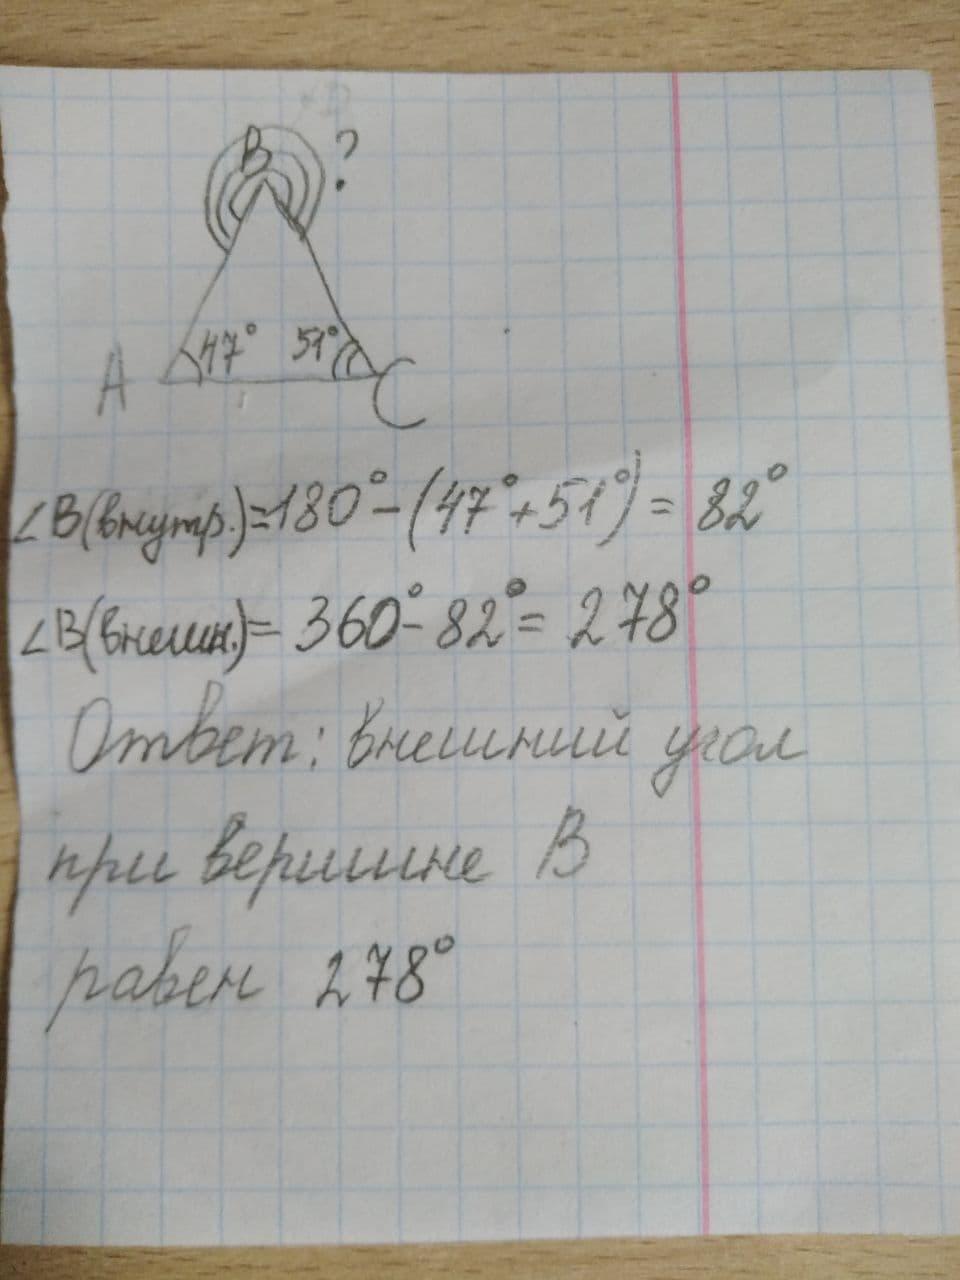 B ?
47° 51°
A C
∠B(внутр.)=180°-(47°+51°)= 82°
∠B(внешн.)= 360°-82°= 278°
Ответ: внешний угол
при вершине B
равен 278°